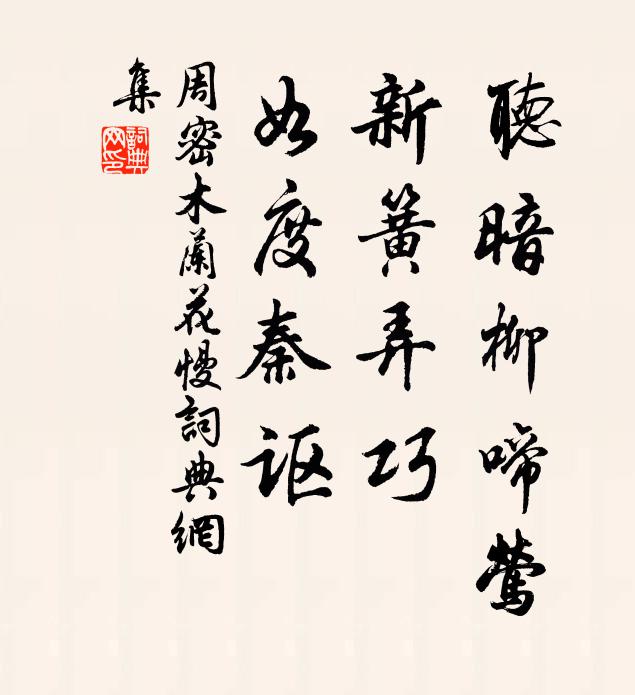 聽暗柳啼鶯
新簧弄巧
如度秦讴
周密木蘭花慢詞典網
集
詞典網印